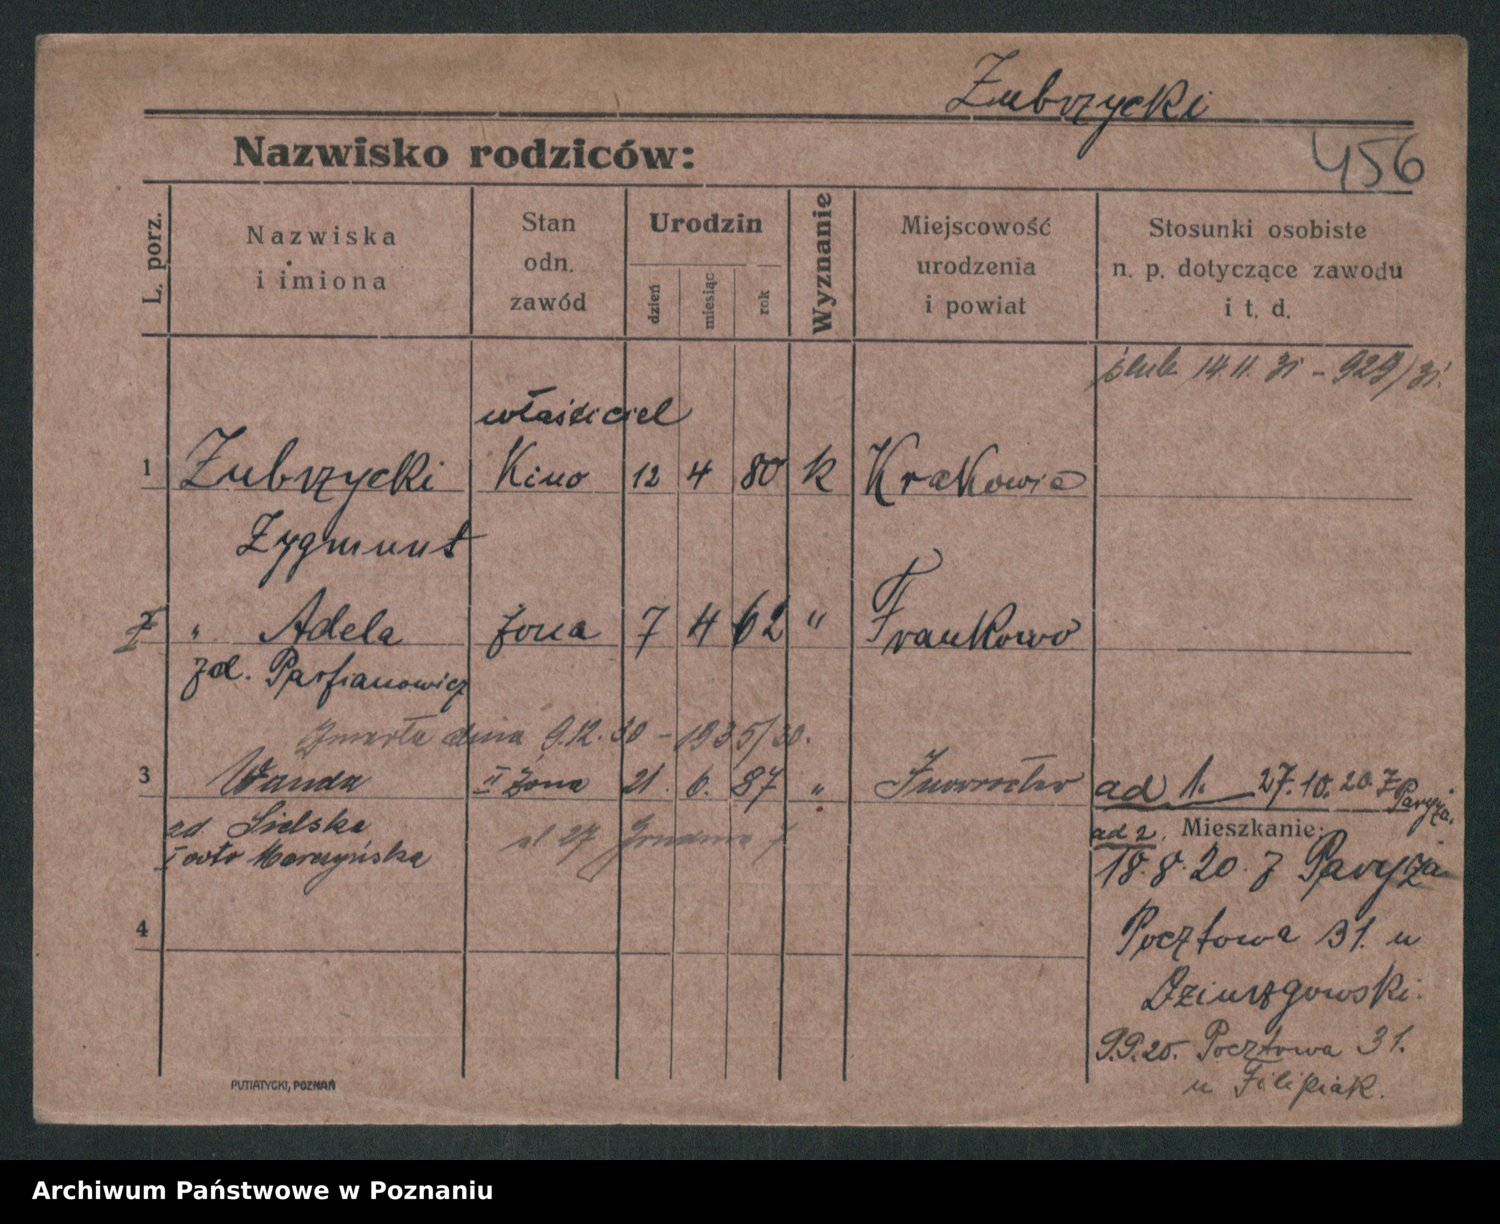 Zubrzycki
Nazwisko rodziców:
456
L. porz.
Nazwiska
i imiona
Stan
odn.
zawód
Urodzin
dzień
miesiąc
rok
Wyznanie
Miejscowość
urodzenia
i powiat
Stosunki osobiste
n. p. dotyczące zawodu
i t. d.
ślub 14.11.31 - 929/31.
właściciel
1 Zubrzycki Kino 12 4 80 k Krakowie
Zygmunt
2 " Adela żona 7 4 62 " Frankowo
zd. Parfianowicz
Zmarła dnia 9.12.30 - 1935/30.
3 Wanda II żona 21. 6. 87 " Inowrocław
zd Sielska
I voto Marczyńska
27 Grudnia 7
ad 1. 27.10.20. z Paryża.
ad 2. Mieszkanie:
18.8.20. z Paryża
Pocztowa 31. u
Dziurzgowski.
9.9.25. Pocztowa 31.
u Filipiak.
4
PUTIATYCKI, POZNAŃ
Archiwum Państwowe w Poznaniu